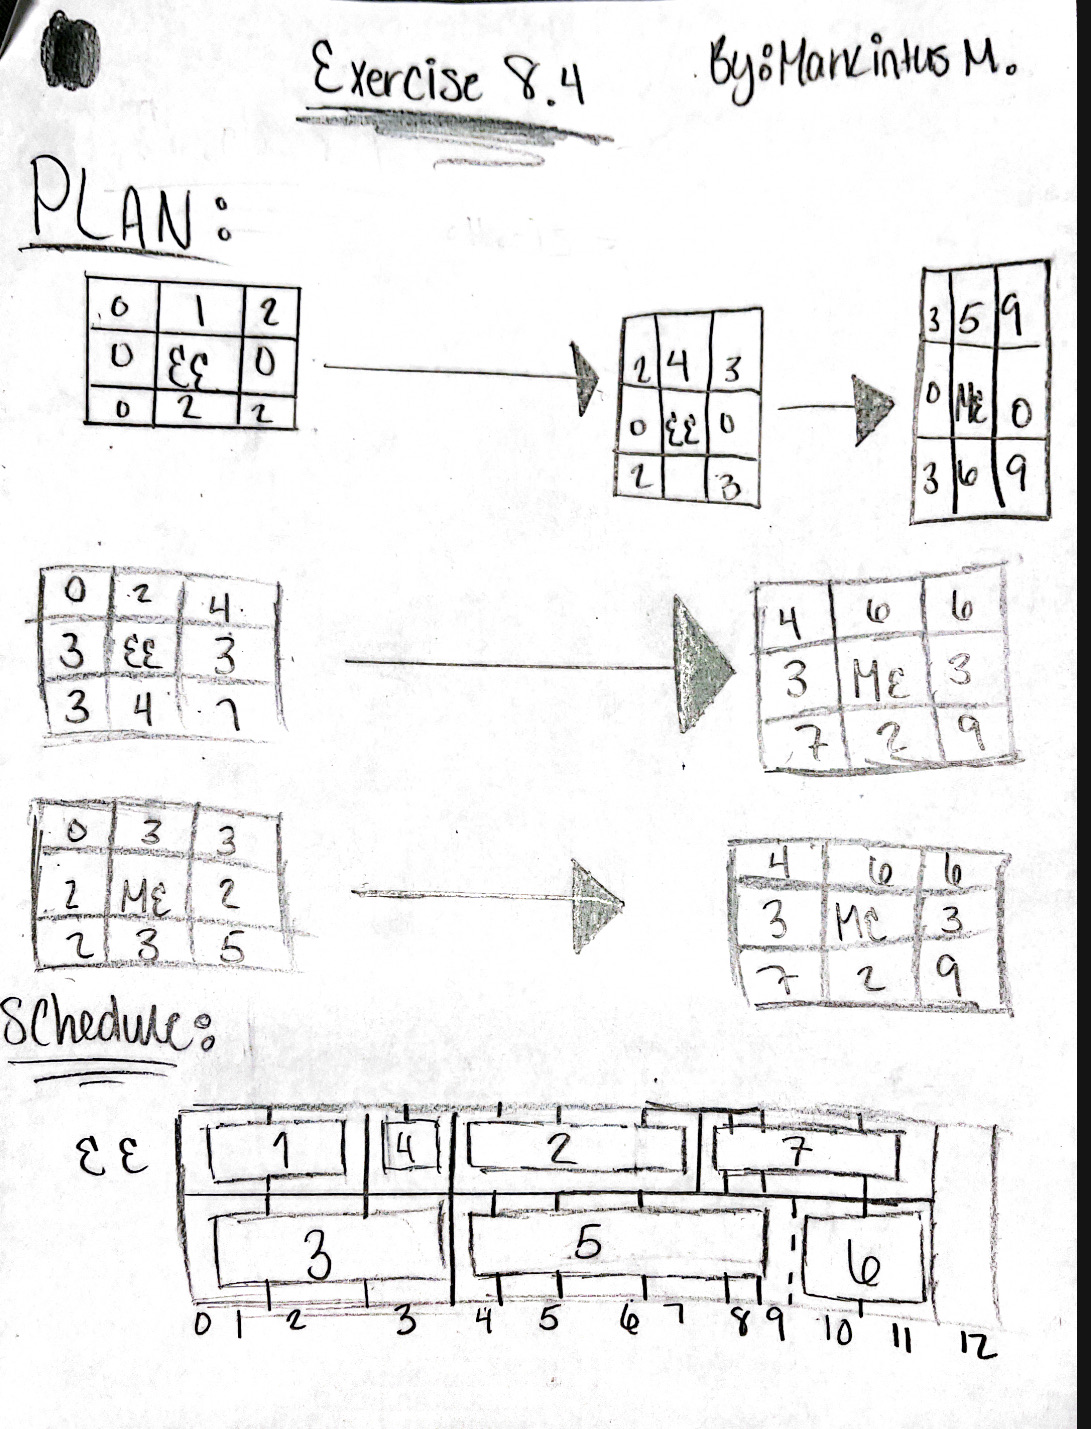 Exercise 8.4
By: Markintus M.
PLAN:
0 1 2
0 EE 0
0 2 2
2 4 3
0 EE 0
2 3
3 5 9
0 ME 0
3 6 9
0 2 4
3 EE 3
3 4 7
4 6 6
3 ME 3
7 2 9
0 3 3
2 ME 2
2 3 5
4 6 6
3 ME 3
7 2 9
Schedule:
EE
1 4 2 7
3 5 6
0 1 2 3 4 5 6 7 8 9 10 11 12